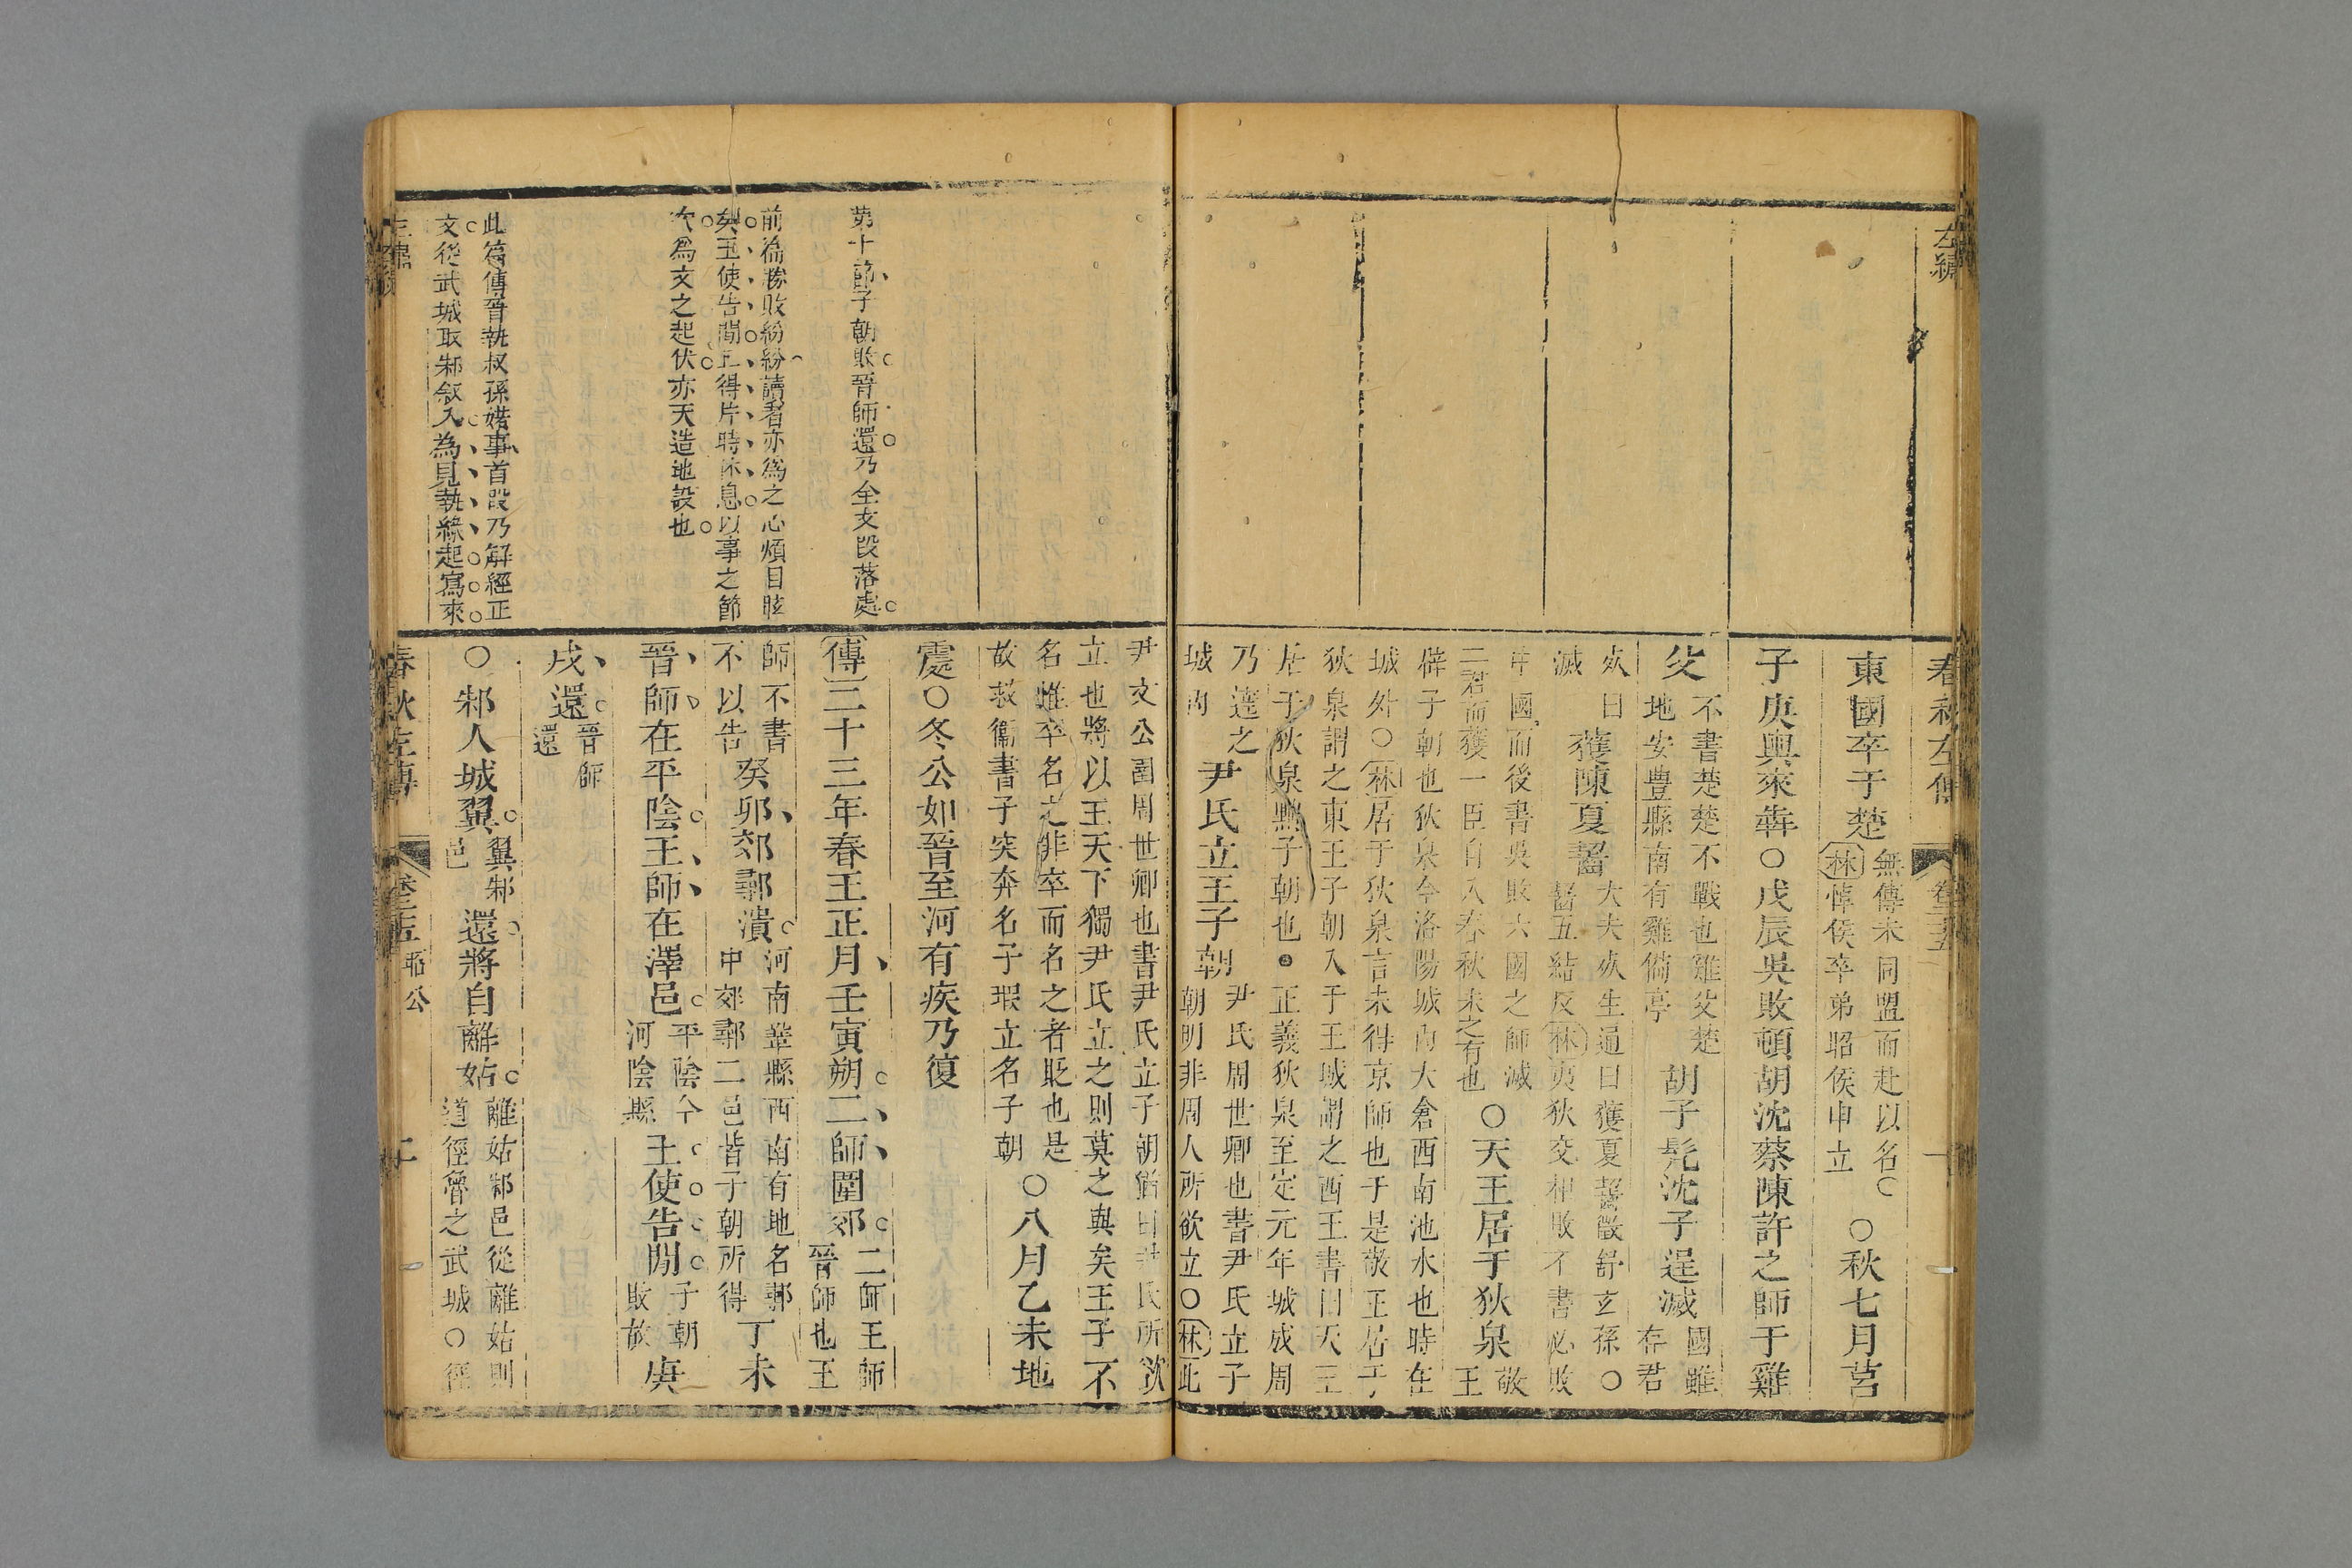 左繡
春秋左傳 卷二十五
東國卒于楚 無傳未同盟而赴以名○
林悼侯卒弟昭侯申立 ○秋七月莒
子庚輿來奔○戊辰吳敗頓胡沈蔡陳許之師于雞
父 不書楚楚不戰也雞父楚
地安豐縣南有雞備亭 胡子髡沈子逞滅 國雖
存君
死曰
滅 獲陳夏齧 大夫死生通曰獲夏齧徵舒玄孫○
齧五結反林夷狄交相敗不書必敗
中國而後書吳敗六國之師滅
二君而獲一臣自入春秋未之有也 ○天王居于狄泉 敬
王
辟子朝也狄泉今洛陽城內大倉西南池水也時在
城外○林居于狄泉言未得京師也于是敬王居于
狄泉謂之東王子朝入于王城謂之西王書曰天王
居于狄泉黜子朝也 正義狄泉至定元年城成周
乃遶之
城內 尹氏立王子朝 尹氏周世卿也書尹氏立子
朝明非周人所欲立○林此
尹文公圉周世卿也書尹氏立子朝猶曰尹氏所欲
立也將以王天下獨尹氏立之則莫之與矣王子不
名雖卒名之非卒而名之者貶也是
故救衞書子突奔名子瑕立名子朝 ○八月乙未地
震○冬公如晉至河有疾乃復
第十節子朝敗晉師還乃全文段落處
傳二十三年春王正月壬寅朔二師圍郊 二師王師
晉師也王
前篇勝敗紛紛讀者亦為之心煩目眩
矣王使告間正得片時休息以事之節
次為文之起伏亦天造地設也
師不書
不以告 癸卯郊鄩潰 河南鞏縣西南有地名鄩
中郊鄩二邑皆子朝所得 丁未
晉師在平陰王師在澤邑 平陰今
河陰縣 王使告間 子朝
敗故 庚
戌還 晉師
還
此篇傳晉執叔孫婼事首段乃解經正
文從武城取邾敘入為見執緣起寫來
○邾人城翼 翼邾
邑 還將自離姑 離姑邾邑從離姑則
道徑魯之武城○徑
左繡
春秋左傳 卷二十五 昭公